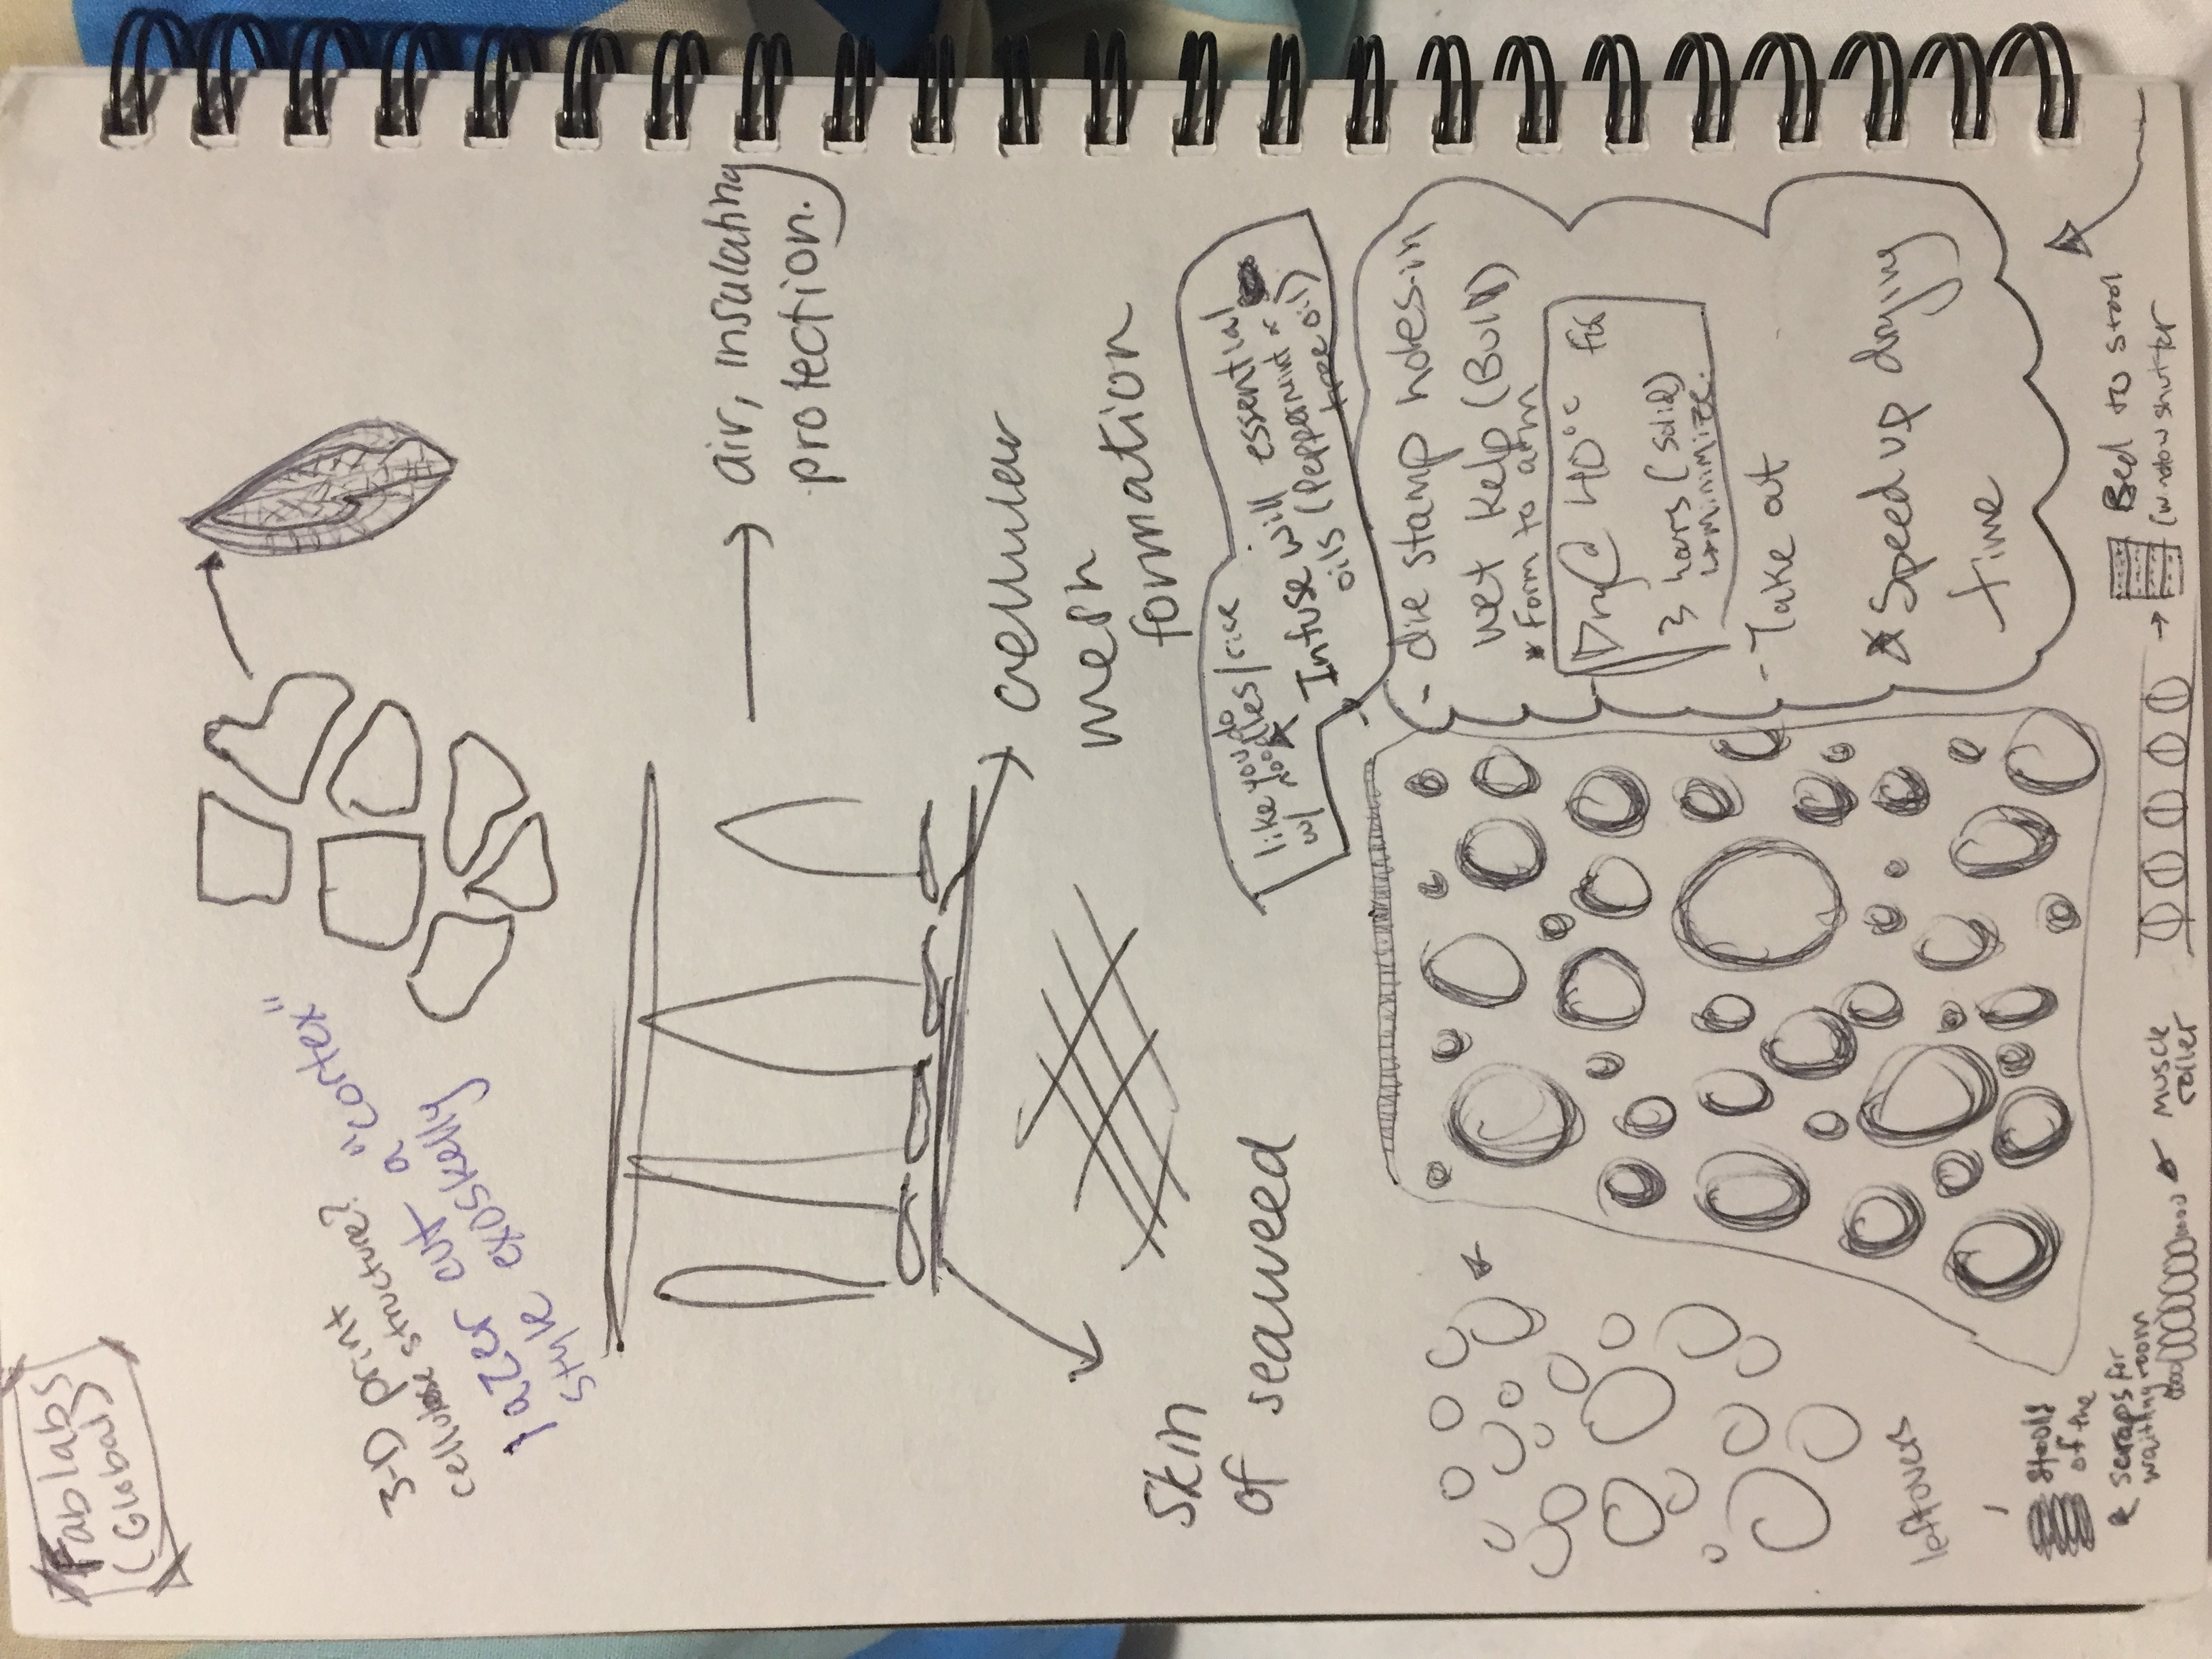 Fablabs
(Global)
3-D print
cellulose structure?
lazer cut a "cortex"
style exoskelly
air, insulating
protection.
mesh
formation
Skin
of seaweed
like you do
w/ noodles/rice
Infuse will essential
oils (Peppermint &
tree oil)
- die stamp holes in
wet kelp (Bull)
* Form to arm
Dry C 40°C
3 hours (solid)
minimize.
- Take out
* Speed up drying
time
leftovers
stools
of the
scraps for
waiting room
muscle
roller
→ Bed to stool
(window shutter